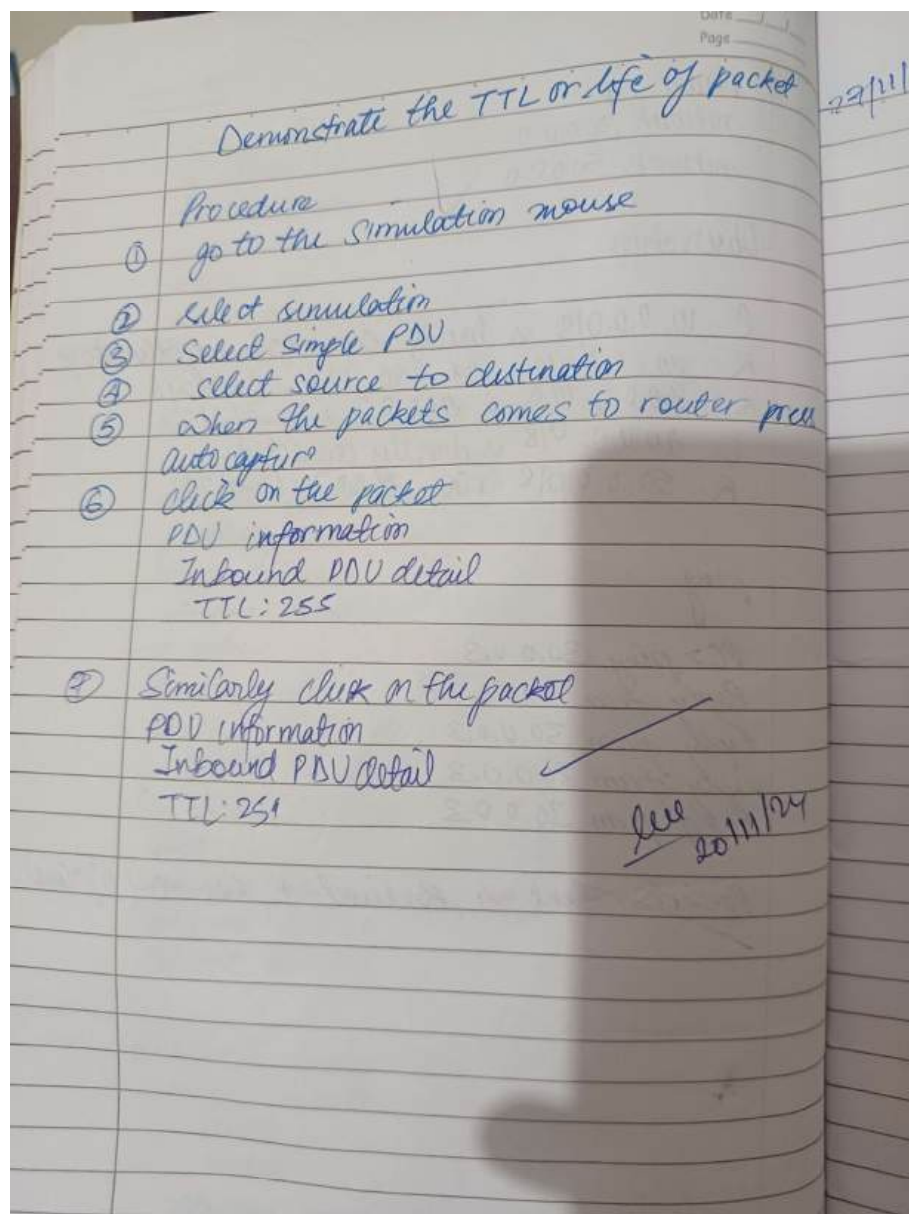 Date
Page
Demonstrate the TTL or life of packet
27/11/
Procedure
① go to the simulation mouse
② select simulation
③ Select Simple PDU
④ select source to destination
⑤ When the packets comes to router press
auto capture
⑥ click on the packet
PDU information
Inbound PDU detail
TTL: 255
⑦ Similarly click on the packet
PDU information
Inbound PDU detail
TTL: 254
20/11/24